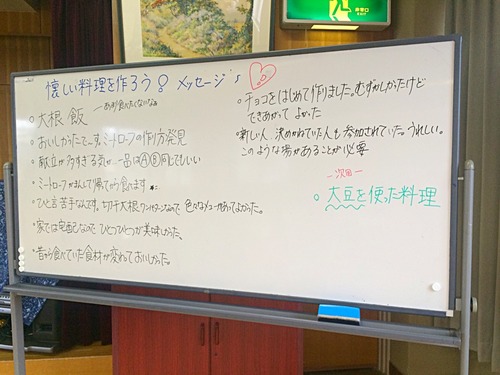 非常口
懐しい料理を作ろう! メッセージ's
。大根飯
。おいしかったでーす。ミートローフの作り方発見
。献立が多すぎる気が 一品はⒶⒷ同じでもいい
。ミートローフがまんして帰ってから食べます
。ひと言苦手なんです。切干大根ワンパターンなので 色々メニューがあってよかった。
。家では宅配なので ひとつひとつが美味しかった。
。昔から食べていた食材が変わっておいしかった。
。チョコをはじめて作りました。むずかしかったけど
できあがって よかった
。新しい人、決めかねていた人も参加されていた。うれしい。
このような場があることが必要
―次回―
。大豆を使った料理